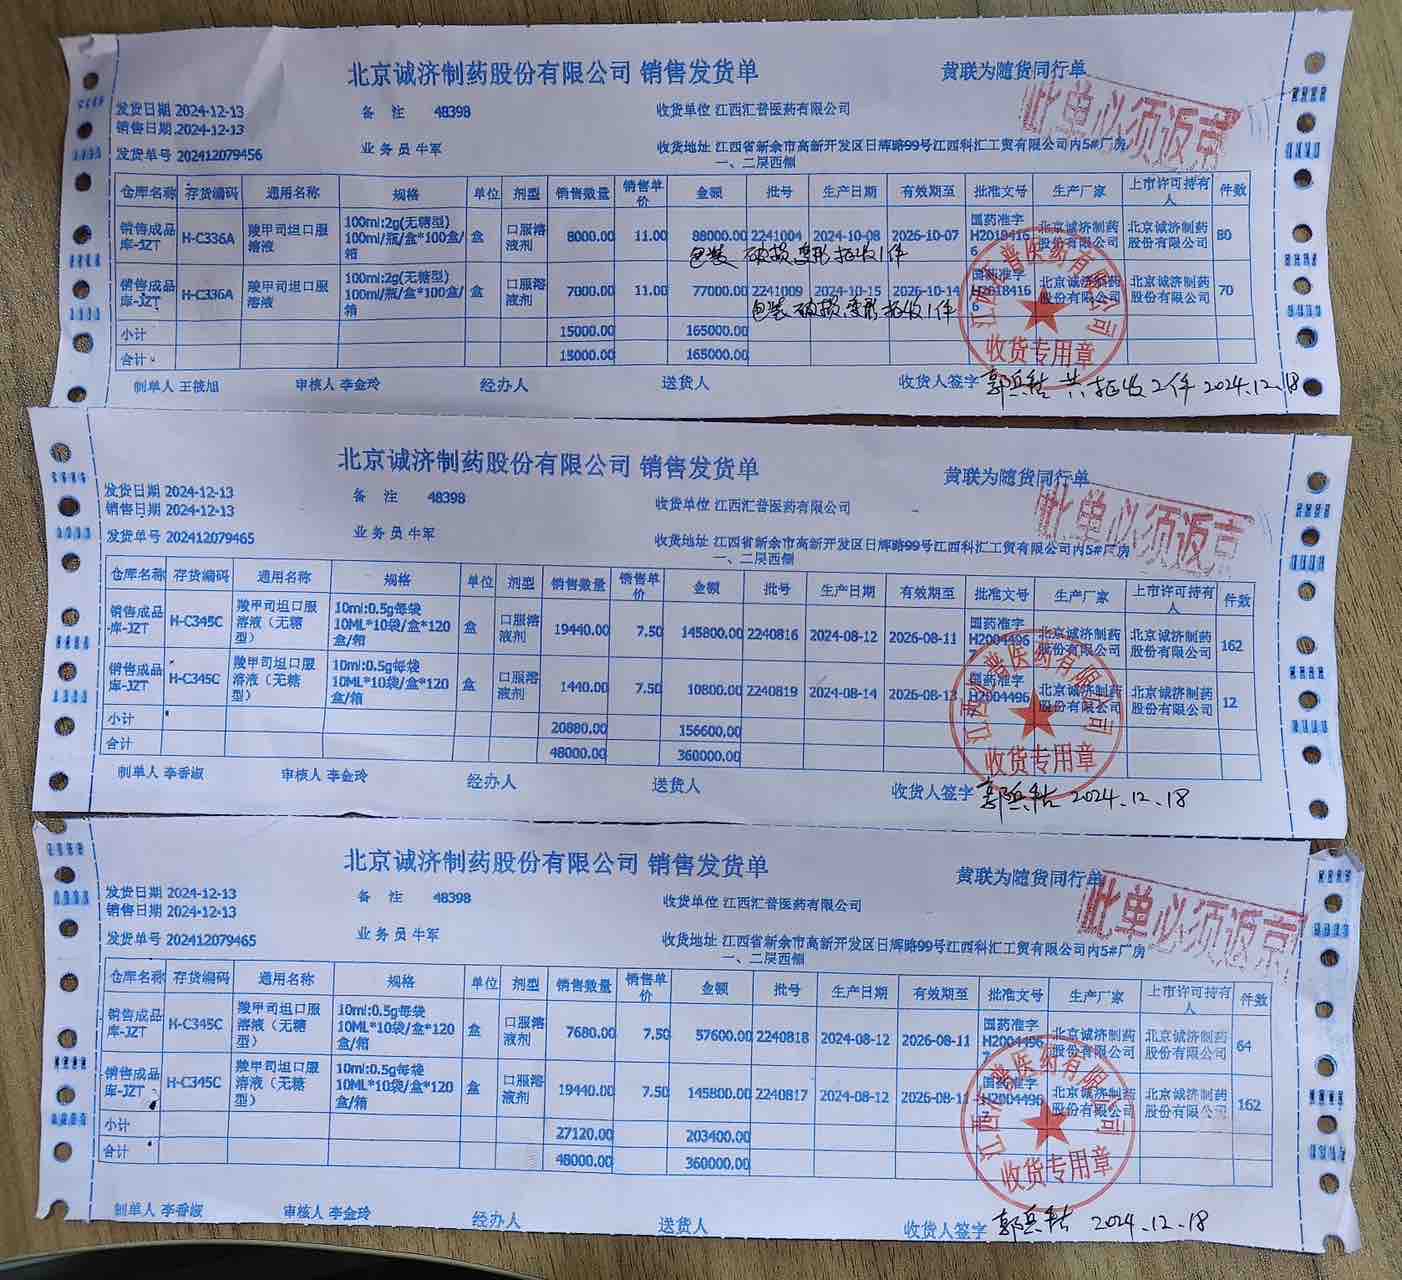 北京诚济制药股份有限公司 销售发货单
黄联为随货同行单
此单必须返京
发货日期 2024-12-13
备 注 48398
收货单位 江西汇普医药有限公司
销售日期 2024-12-13
发货单号 202412079456
业务员 牛军
收货地址 江西省新余市高新开发区日辉路99号江西科汇工贸有限公司内5#厂房
一、二层西侧
仓库名称 存货编码 通用名称 规格 单位 剂型 销售数量 销售单价 金额 批号 生产日期 有效期至 批准文号 生产厂家 上市许可持有人 件数
销售成品库-JZT H-C336A 羧甲司坦口服溶液 100ml:2g(无糖型) 100ml/瓶/盒*100盒/箱 盒 口服溶液剂 8000.00 11.00 88000.00 2241004 2024-10-08 2026-10-07 国药准字H20184166 北京诚济制药股份有限公司 北京诚济制药股份有限公司 80
包装破损,变形 拒收1件
销售成品库-JZT H-C336A 羧甲司坦口服溶液 100ml:2g(无糖型) 100ml/瓶/盒*100盒/箱 盒 口服溶液剂 7000.00 11.00 77000.00 2241009 2024-10-15 2026-10-14 国药准字H20184166 北京诚济制药股份有限公司 北京诚济制药股份有限公司 70
包装破损,变形 拒收1件
小计 15000.00 165000.00
合计 15000.00 165000.00
江西汇普医药有限公司
收货专用章
制单人 王筱旭 审核人 李金玲 经办人 送货人 收货人签字 共拒收2件 2024.12.18
北京诚济制药股份有限公司 销售发货单
黄联为随货同行单
此单必须返京
发货日期 2024-12-13
备 注 48398
收货单位 江西汇普医药有限公司
销售日期 2024-12-13
发货单号 202412079465
业务员 牛军
收货地址 江西省新余市高新开发区日辉路99号江西科汇工贸有限公司内5#厂房
一、二层西侧
仓库名称 存货编码 通用名称 规格 单位 剂型 销售数量 销售单价 金额 批号 生产日期 有效期至 批准文号 生产厂家 上市许可持有人 件数
销售成品库-JZT H-C345C 羧甲司坦口服溶液（无糖型） 10ml:0.5g每袋 10ML*10袋/盒*120盒/箱 盒 口服溶液剂 19440.00 7.50 145800.00 2240816 2024-08-12 2026-08-11 国药准字H20044967 北京诚济制药股份有限公司 北京诚济制药股份有限公司 162
销售成品库-JZT H-C345C 羧甲司坦口服溶液（无糖型） 10ml:0.5g每袋 10ML*10袋/盒*120盒/箱 盒 口服溶液剂 1440.00 7.50 10800.00 2240819 2024-08-14 2026-08-13 国药准字H2004496 北京诚济制药股份有限公司 北京诚济制药股份有限公司 12
小计 20880.00 156600.00
合计 48000.00 360000.00
江西汇普医药有限公司
收货专用章
制单人 李香淑 审核人 李金玲 经办人 送货人 收货人签字 2024.12.18
北京诚济制药股份有限公司 销售发货单
黄联为随货同行单
此单必须返京
发货日期 2024-12-13
备 注 48398
收货单位 江西汇普医药有限公司
销售日期 2024-12-13
发货单号 202412079465
业务员 牛军
收货地址 江西省新余市高新开发区日辉路99号江西科汇工贸有限公司内5#厂房
一、二层西侧
仓库名称 存货编码 通用名称 规格 单位 剂型 销售数量 销售单价 金额 批号 生产日期 有效期至 批准文号 生产厂家 上市许可持有人 件数
销售成品库-JZT H-C345C 羧甲司坦口服溶液（无糖型） 10ml:0.5g每袋 10ML*10袋/盒*120盒/箱 盒 口服溶液剂 7680.00 7.50 57600.00 2240818 2024-08-12 2026-08-11 国药准字H20044967 北京诚济制药股份有限公司 北京诚济制药股份有限公司 64
销售成品库-JZT H-C345C 羧甲司坦口服溶液（无糖型） 10ml:0.5g每袋 10ML*10袋/盒*120盒/箱 盒 口服溶液剂 19440.00 7.50 145800.00 2240817 2024-08-12 2026-08-11 国药准字H20044967 北京诚济制药股份有限公司 北京诚济制药股份有限公司 162
小计 27120.00 203400.00
合计 48000.00 360000.00
江西汇普医药有限公司
收货专用章
制单人 李香淑 审核人 李金玲 经办人 送货人 收货人签字 2024.12.18